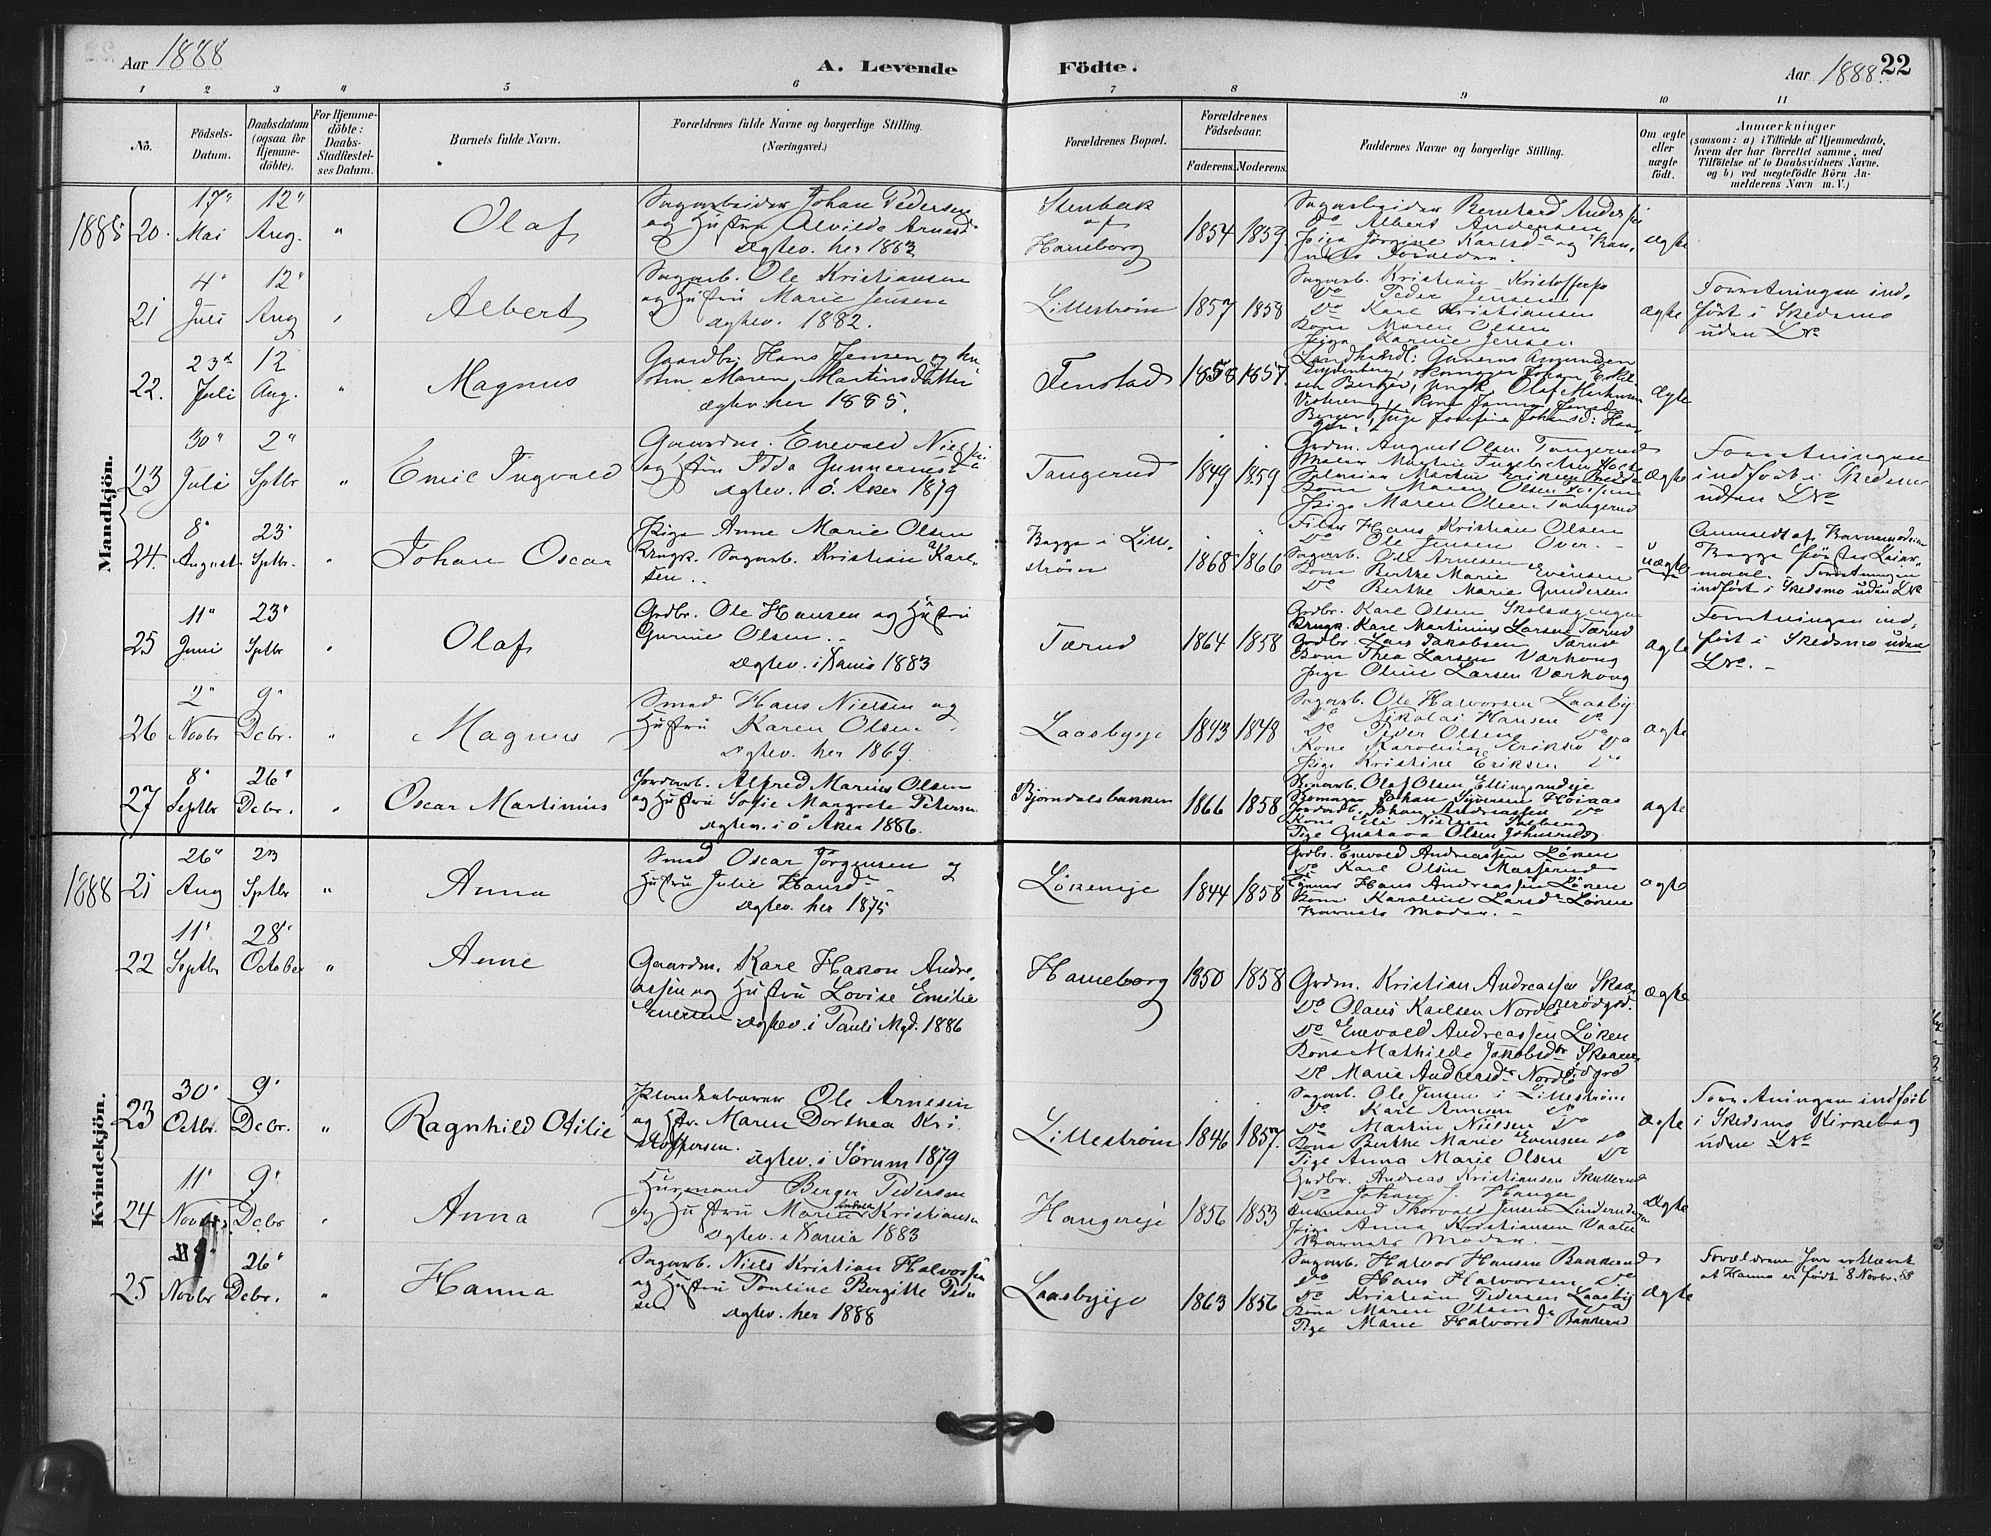 Aar 1888
A. Levende
Födte.
Aar 1888.
22
1 2 3 4 5 6 7 8 9 10 11
No.
Födsels-Datum.
Daabsdatum (ogsaa for Hjemme-döbte).
For Hjemme-döbte: Daabs-Stadfæstel-ses Datum.
Barnets fulde Navn.
Forældrenes fulde Navne og borgerlige Stilling.
(Næringsvei.)
Forældrenes Bopæl.
Forældrenes Födselsaar.
Faderens. Moderens.
Faddernes Navne og borgerlige Stilling.
Om ægte eller uægte födt.
Anmærkninger
(saasom: a) i Tilfælde af Hjemmedaab, hvem der har forrettet samme, med Tilföielse af to Daabsvidners Navne, og b) ved uægtefödte Börn An-melderens Navn m. V.)
Mandkjön.
1885 20. 17" Mai 12" Aug. " Olaf
Sagarbeider Johan Pedersen
og Hustru Alvilde Arnesd
Ægtev. her 1883
Stenbæk
af
Haneborg
1854 1859
Sagarbeider Bernhard Anders
Do Albert Andersen
Pige Jörgine Karlsd og Bar-
nets Forældre.
ægte
21 4" Juli 12" Aug " Albert
Sagarb. Ole Kristiansen
og Hustru Marie Jensen
Ægtev. 1882.
Lilleström 1857 1858
Sagarb. Kristian Kristoffers
Do Peder Jensen
Do Karl Kristiansen
Kone Maren Olsen
Pige Karnie Jensen
ægte
Forretningen ind-
fört i Skedsmo
uden No
22. 23d Juli 12 Aug. " Magnus
Gaardbr. Hans Jensen og hu
stru Maren Martinsdatter
Ægtev. her 1885.
Tenstad 1858 1857.
Landhandl: Gunerus Amunden
ægte
23 30" Juli 2" Sptbr " Emil Ingvald
Gaardm. Enevald Niels
og Hustru Idda Gunnerusd
Ægtev. i Ö. Aker 1879
Tangerud 1849 1859
Grdm. August Olsen Tangerud
Kone Maren Olsen
Pige Maren Olsen Tangerud
ægte
Forretningen
indfört i Skedsmo
uden No
24. 8" August 23" Sptbr. " Johan Oscar
Pige Anne Marie Olsen
Ungk. Sagarb. Kristian Karl-
sen..
Bagge i Lille-
ström
1868 1866
Filer Hans Kristian Olsen
Do Ole Jensen Over.
Sagarb. Ole Arnesen
Kone Berthe Marie Evensen
Do Berthe Marie Gundersen
uægte
Anmeldt af Barnemoderen
indfört i Skedsmo uden No
25 11" Juni 23" Sptbr " Olaf
Grdbr. Ole Hansen og Hustru
Gurine Olsen.
Ægtev. i Kania 1883
Tærud 1864 1858
Grdbr. Karl Olsen
Ungk. Karl Martinius Larsen Tærud
Grdbr. Lars Jakobsen Tærud
Kone Thea Larsen Værhoug
Pige Oline Larsen Værhoug
ægte
Forretningen ind-
fört i Skedsmo uden
No.
26 2" Novbr 9" Dcbr. " Magnus
Smed Hans Nielsen og
Hustru Karen Olsen
Ægtev. her 1869.
Laasbyeje 1843 1848
Sagarb. Ole Halvorsen Laasby
Do Nikolai Hansen Do
Do Peder Olsen Do
Kone Karoline Eriksen Do
Pige Kristine Eriksen Do
ægte
27 8" Septbr 26" Dcbr. " Oscar Martinius
Jordarb. Alfred Marius Olsen
og Hustru Sofie Margrete Petersen
Ægtev. i Ö Aker 1886.
Björndalsbakken 1866 1858
Olaf Olsen Ellingsrudeje
Johan Andreassen Do
Pige Gustava Olsen
ægte
Kvindekjön.
1888 21 26" Aug 23 Sptbr " Anna
Smed Oscar Jörgensen og
Hustru Julie Hansd
Ægtev. her 1875
Lökeneje 1844 1858
Grdbr. Enevald Andreassen Löken
Do Karl Olsen
Hans Andreassen Löken
Kone Karoline Larsd Löken
Barnets Moder.
ægte
22 11" Septbr 28" October " Anne
Gaardm. Karl Hakon Andre-
assen og Hustru Lovise Emilie
Evensen. Ægtev. i Pauli Mgd. 1886
Haneborg 1850 1858
Grdm. Kristian Andreassen Skaa-
Do Olaus Karlsen Nordli
Do Enevald Andreassen Löken
Kone Mathilde Jakobsdr Skaarer
Do Marie Andreasd
ægte
23 30" Octbr. 9" Dcbr. " Ragnhild Otilie
Plankebærer Ole Arnesen
og Hstr. Maren Dorthea Kri-
stoffersen.
Ægtev. i Sörum 1879
Lilleström 1846 1857.
Sagarb. Ole Jensen i Lilleström
Do Karl Arnesen Do
Do Martin Nielsen Do
Kone Berthe Marie Evensen Do
Pige Anna Marie Olsen Do
ægte
Forretningen indfört
i Skedsmo Kirkebog
uden No
24 11" Novbr. 9" Dcbr " Anna
Husmand Berger Pedersen
og Hustru Maren Kristiansen
Ægtev. i Kania 1883
Haugereje 1856 1853
Grdbr. Andreas Kristiansen Skullerud
Do Johan J. Hauger
Husmand Thorvald Jensen
Pige Anna Kristiansen
Barnets Moder.
ægte
25 Novbr 26" Dcbr. " Hanna
Sagarb. Niels Kristian Halvorsen
og Hustru Pauline Bergitte Peder
sen
Ægtev. her 1888
Laasbyeje 1863 1856
Sagarb. Halvor Hansen Bakkerud
Do Hans Halvorsen Do
Do Kristian Pedersen Laasby
Kone Maren Olsen Do
Pige Marie Halvorsd Bakkerud
ægte
Forældrene har erklæret
at Hanna er födt 8 Novbr. 88